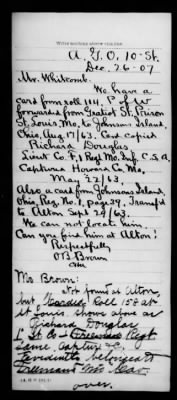 A. G. O. 10-St.
Dec. 26-07
Mr. Whitcomb.
We have a
card from roll 1114, P of W
forwarded from Gratiot St. Prison
St. Louis, Mo. to Johnsons Island,
Ohio, Aug 17/63. Card copied
Richard Douglas
Lieut Co. F, 1 Regt Mo. Inf. C.S.A.
Captured Howard Co. Mo.
May 22/63.
Also a card from Johnsons Island,
Ohio, Reg. No. 1, page 39, Transf'd
to Alton Sept 29/63.
We can not locate him.
Can you find him at Alton?
Respectfully
O B Brown
Mr Brown:
Not found at Alton
but Roll 158 at
St Louis shows above as
Richard Douglas
Lt Co Freeman's Regt
same capture &c
Evidently belonged to
Freeman's Mo. Cav.
over.